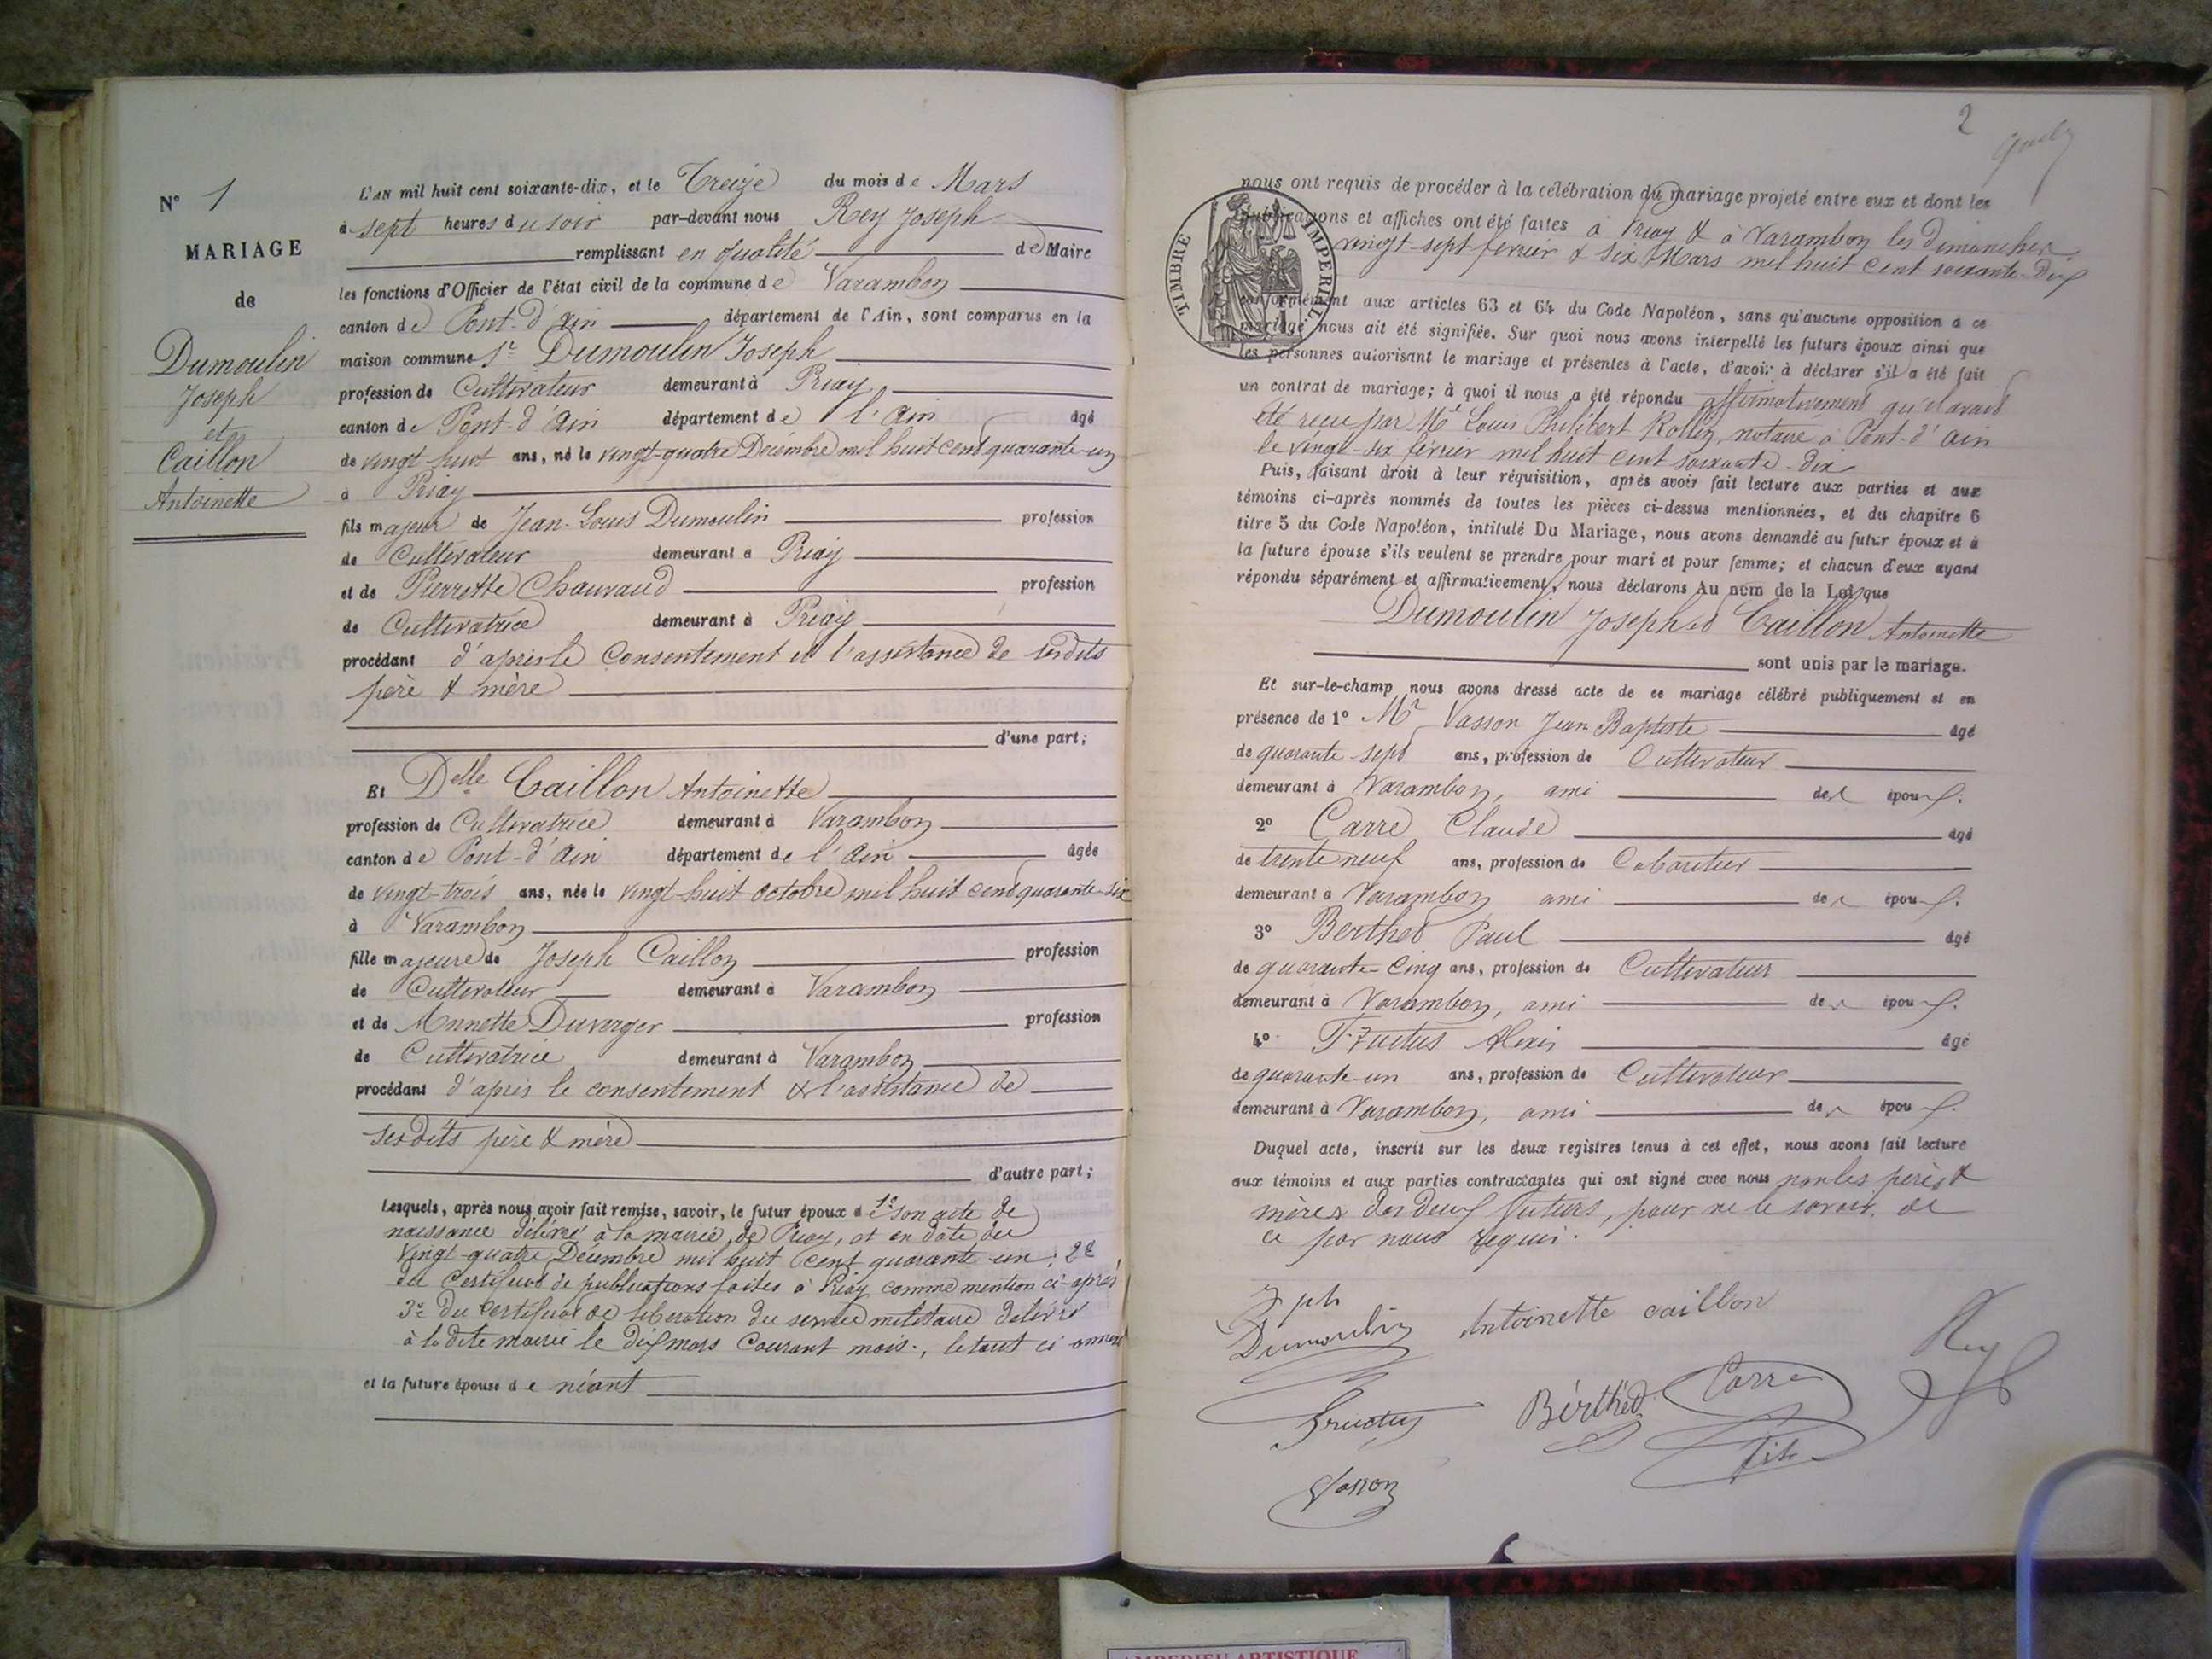 N° 1
MARIAGE
de
Dumoulin
Joseph
et
Caillon
Antoinette
L'AN mil huit cent soixante-dix, et le Treize du mois de Mars
à sept heures du soir par-devant nous Rey Joseph
remplissant en qualité de Maire
les fonctions d'Officier de l'état civil de la commune de Varambon
canton de Pont-d'Ain département de l'Ain, sont comparus en la
maison commune Sr Dumoulin Joseph
profession de Cultivateur demeurant à Priay
canton de Pont-d'Ain département de l'Ain âgé
de vingt huit ans, né le vingt-quatre Décembre mil huit cent quarante-un
à Priay
fils majeur de Jean-Louis Dumoulin profession
de Cultivateur demeurant à Priay
et de Pierrette Chauvaud profession
de Cultivatrice demeurant à Priay
procédant d'après le Consentement et l'assistance de sesdits
père & mère
d'une part;
Et Delle Caillon Antoinette
profession de Cultivatrice demeurant à Varambon
canton de Pont-d'Ain département de l'Ain âgée
de vingt-trois ans, née le vingt-huit octobre mil huit cent quarante-six
à Varambon
fille majeure de Joseph Caillon profession
de Cultivateur demeurant à Varambon
et de Annette Duverger profession
de Cultivatrice demeurant à Varambon
procédant d'après le consentement & l'assistance de
sesdits père & mère
d'autre part;
Lesquels, après nous avoir fait remise, savoir, le futur époux de 1° son acte de
naissance délivré à la mairie de Priay, et en date du
Vingt-quatre Décembre mil huit cent quarante-un; 2°
du Certificat de publications faites à Priay comme mention ci-après
3° Du Certificat de libération du service militaire délivré
à la dite mairie le dix mars Courant mois., le tout ci annexé
et la future épouse de néant
2
nous ont requis de procéder à la célébration du mariage projeté entre eux et dont les
publications et affiches ont été faites à Priay & à Varambon les dimanches
vingt-sept février & six Mars mil huit cent soixante-dix
TIMBRE IMPERIAL
conformément aux articles 63 et 64 du Code Napoléon, sans qu'aucune opposition à ce
mariage nous ait été signifiée. Sur quoi nous avons interpellé les futurs époux ainsi que
les personnes autorisant le mariage et présentes à l'acte, d'avoir à déclarer s'il a été fait
un contrat de mariage; à quoi il nous a été répondu affirmativement qu'il avait
été reçu par Me Louis Philibert Rollin, notaire à Pont-d'Ain
le vingt-six février mil huit cent soixante-dix
Puis, faisant droit à leur réquisition, après avoir fait lecture aux parties et aux
témoins ci-après nommés de toutes les pièces ci-dessus mentionnées, et du chapitre 6
titre 5 du Code Napoléon, intitulé Du Mariage, nous avons demandé au futur époux et à
la future épouse s'ils veulent se prendre pour mari et pour femme; et chacun d'eux ayant
répondu séparément et affirmativement, nous déclarons Au nom de la Loi que
Dumoulin Joseph et Caillon Antoinette
sont unis par le mariage.
Et sur-le-champ nous avons dressé acte de ce mariage célébré publiquement et en
présence de 1° Mr Vasson Jean Baptiste âgé
de quarante-sept ans, profession de Cultivateur
demeurant à Varambon, ami des époux.
2° Carre Claude âgé
de trente neuf ans, profession de Cabaretier
demeurant à Varambon ami des époux.
3° Berthet Paul âgé
de quarante-cinq ans, profession de Cultivateur
demeurant à Varambon, ami des époux.
4° Fructus Alexis âgé
de quarante-un ans, profession de Cultivateur
demeurant à Varambon, ami des époux.
Duquel acte, inscrit sur les deux registres tenus à cet effet, nous avons fait lecture
aux témoins et aux parties contractantes qui ont signé avec nous non les pères &
mères des deux futurs, pour ne le savoir, de
ce par nous requis.
Jph
Dumoulin Antoinette caillon Rey
Fructus Bérthet Carre
Vasson
AMBERIEU ARTISTIQUE